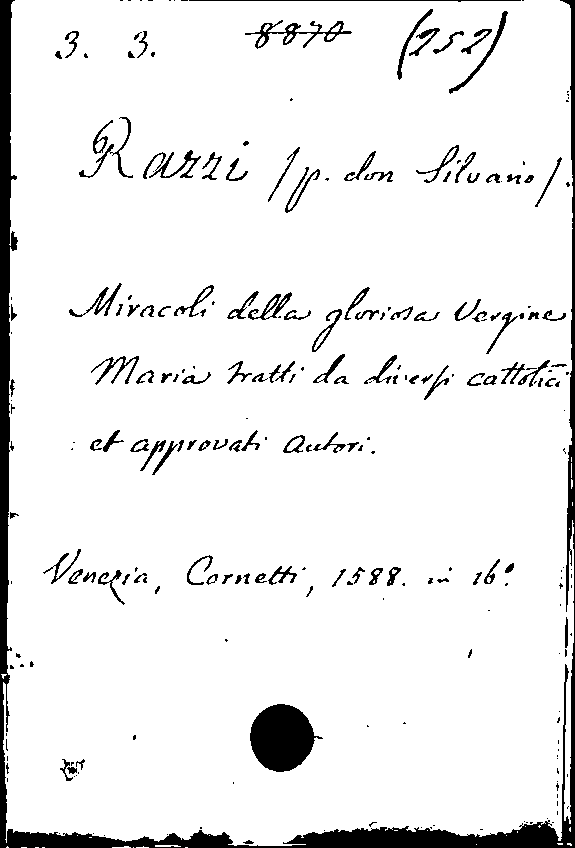 3. 3. 8870 (252)
Razzi /p. don Silvano/.
Miracoli della gloriosa Vergine
Maria tratti da diversi cattolici
et approvati autori.
Venezia, Cornetti, 1588. in 16°.